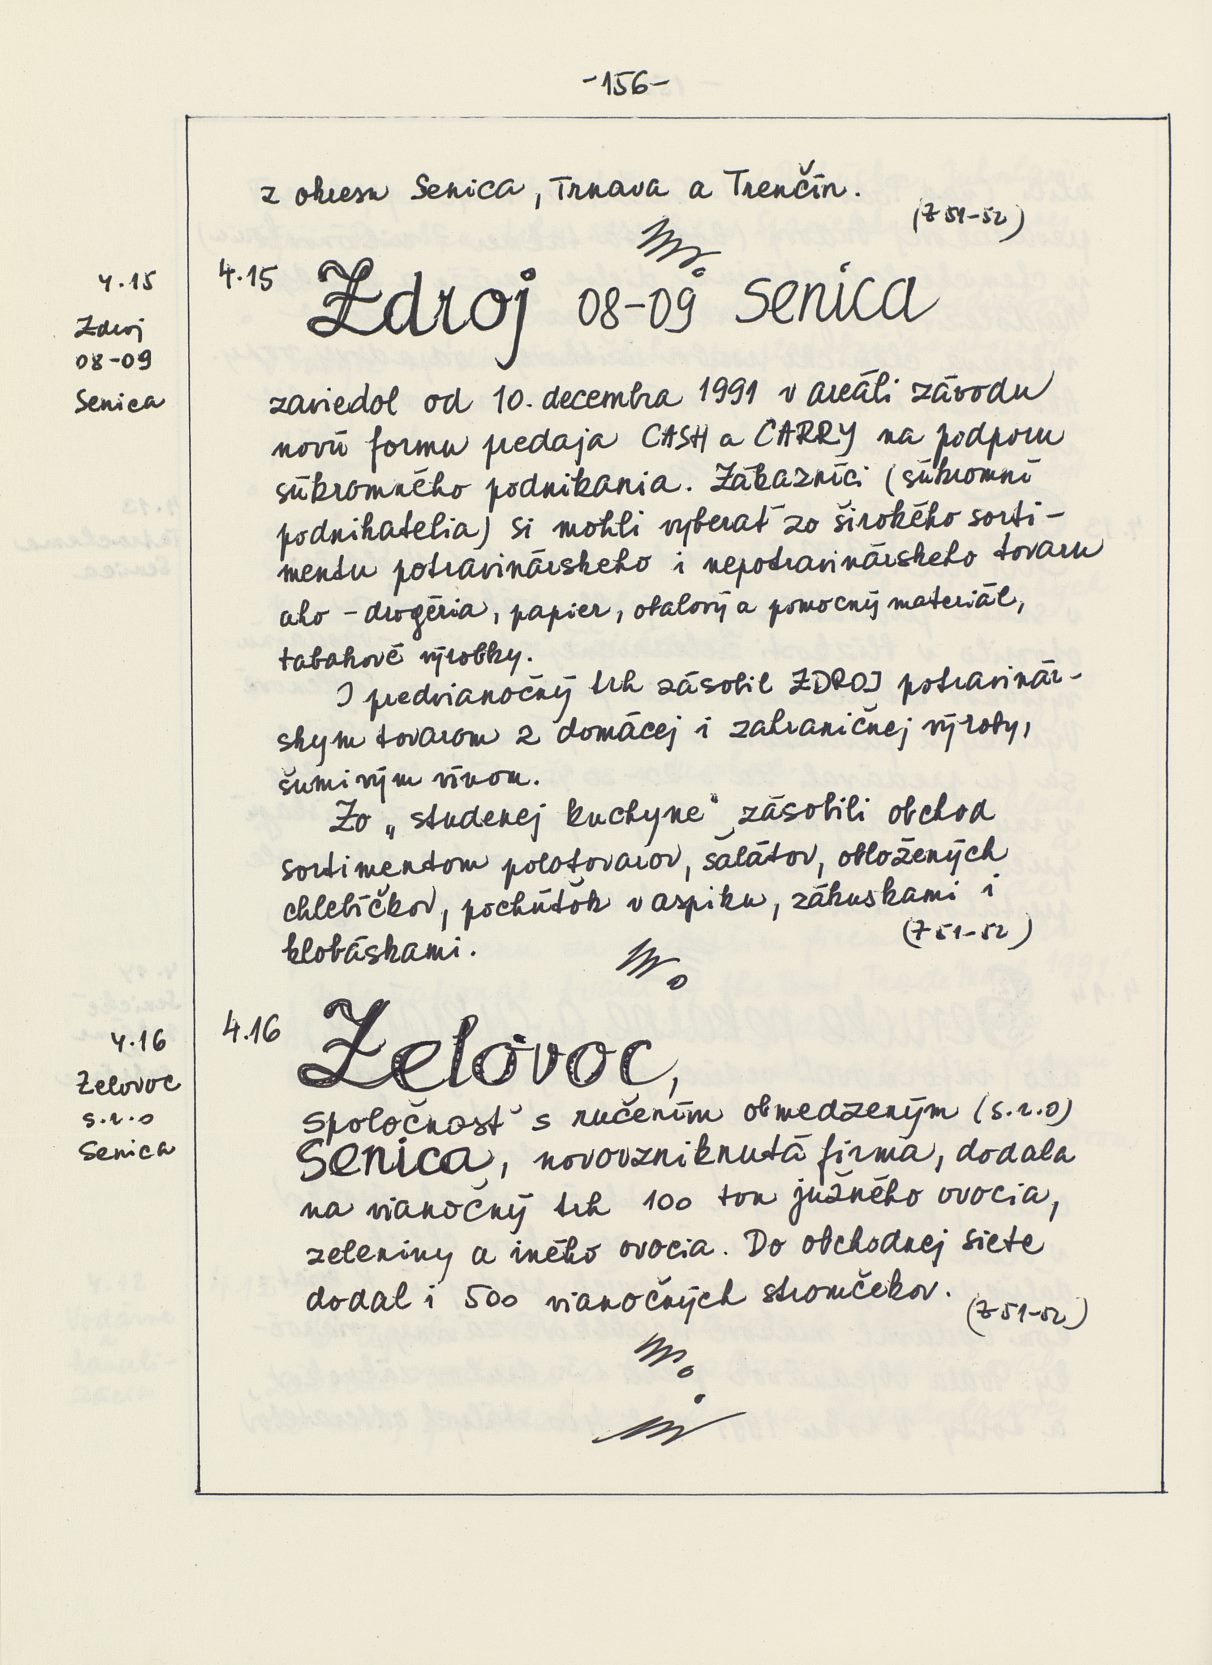 -156-
z okresu Senica, Trnava a Trenčín.
(Z 51-52)
4.15
Zdroj
08-09
Senica
4.15 Zdroj 08-09 Senica
zaviedol od 10. decembra 1991 v areáli závodu
novú formu predaja CASH a CARRY na podporu
súkromného podnikania. Zákazníci (súkromní
podnikatelia) si mohli vyberať zo širokého sorti-
mentu potravinárskeho i nepotravinárskeho tovaru
ako - drogéria, papier, obalový a pomocný materiál,
tabakové výrobky.
I predvianočný trh zásobil ZDROJ potravinár-
skym tovarom z domácej i zahraničnej výroby,
šumivým vínom.
Zo „studenej kuchyne" zásobili obchod
sortimentom polotovarov, šalátov, obložených
chlebíčkov, pochúťok v aspiku, zákuskami i
klobáskami.
(Z 51-52)
4.16
Zelovoc
s.r.o
Senica
4.16 Zelovoc,
Spoločnosť s ručením obmedzeným (s.r.o)
Senica, novovzniknutá firma, dodala
na vianočný trh 100 ton južného ovocia,
zeleniny a iného ovocia. Do obchodnej siete
dodal i 500 vianočných stromčekov.
(Z 51-52)